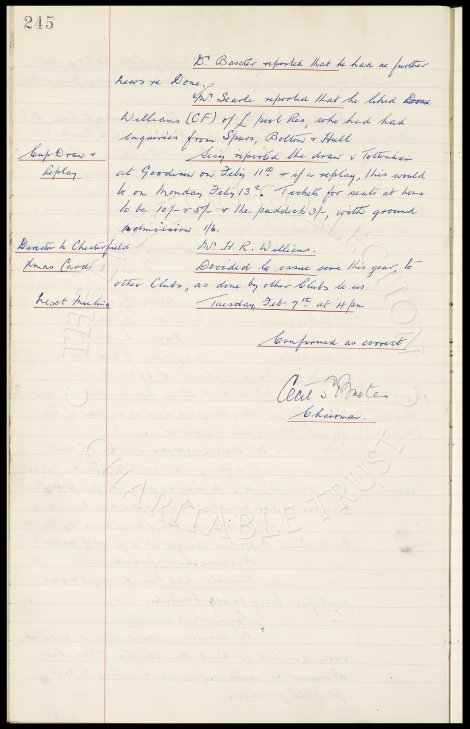 245
Mr. Baxter reported that he had no further
news re Done.
Mr. Searle reported that he liked Done
Williams (CF) of L'pool Res, who had had
enquiries from Spurs, Bolton & Hull
Cup Draw &
Replay
Secy reported the draw v Tottenham
at Goodison on Feby 11th & if a replay, this would
be on Monday Feby 13th. Tickets for seats at home
to be 10/- & 5/- & the paddock 3/-, with ground
admission 1/6.
Director to Chesterfield
Mr. H. R. Williams.
Xmas Cards
Decided to issue some this year, to
other Clubs, as done by other Clubs to us.
Next Meeting
Tuesday Feb 7th at 4pm
Confirmed as correct
Cecil S
Chairman.
CHARITABLE TRUST